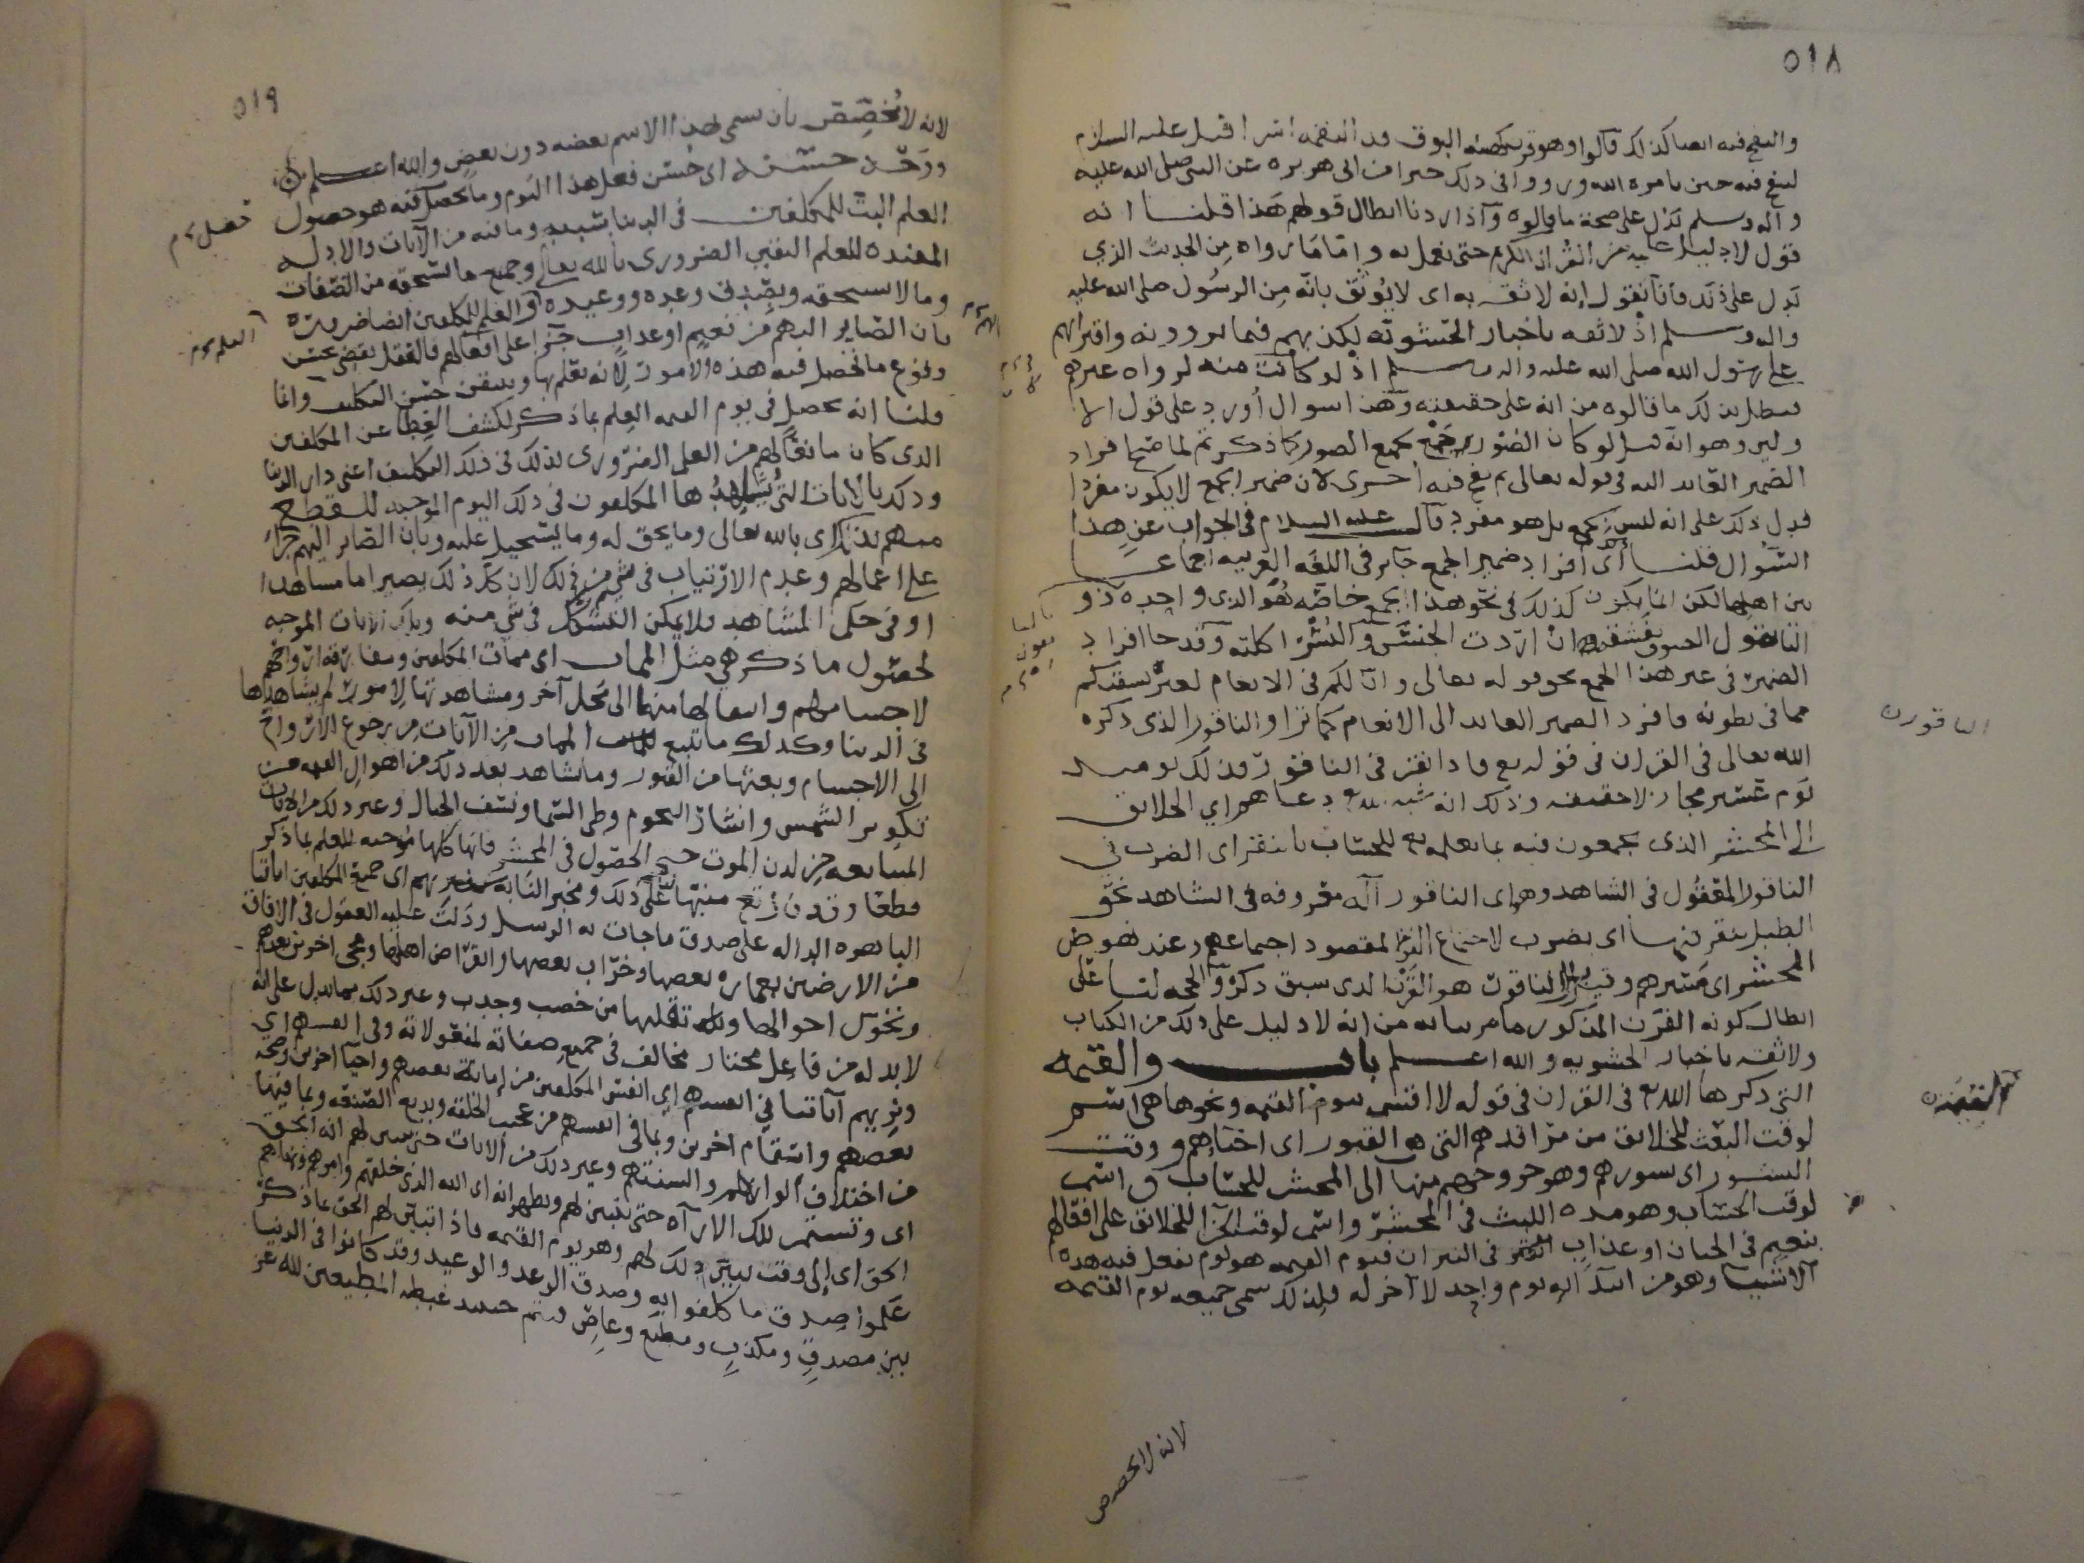 ٥١٨
والنفخ فيه ايضا كذلك قالوا وهو قرن كهيئة البوق فيه النفخة قيل عليه السلام
لينفخ فيه حين يامره الله وروو في ذلك خبرا عن ابي هريرة عن النبي صلى الله عليه
واله وسلم تدل على صحة ما قالوه واذا اردنا ابطال قولهم هذا قلنا انه
قول لا دليل عليه من القران الكريم حتى نعمل به واما ما رواه من الحديث الذي
يدل على ذلك فانا نقول انه لا ثقة به اي لا يوثق بانه من الرسول صلى الله عليه
واله وسلم اذ لا ثقة باخبار الحشوية لكذبهم فيما يروونه وافترائهم
على رسول الله صلى الله عليه واله وسلم اذ لو كانت منه لرواه غيرهم
فبطل بذلك ما قالوه من انه على حقيقته وهذا سوال اورد على قول الا
ولين وهو انه قيل لو كان الصور جمع كجمع الصور كما ذكرتم لما صح افراد
الضمير العائد اليه في قوله تعالى ثم نفخ فيه اخرى لان ضمير الجمع لا يكون مفردا
فدل ذلك على انه ليس بجمع بل هو مفرد قال عليه السلام في الجواب عن هذا
السوال قلنا اي افراد ضمير الجمع جائز في اللغة العربية اجماعا
بين اهلها لكن انما يكون كذلك في نحو هذا الجمع خاصة هو الذي واحده ذو
التا تقول الصوف نفشته ان اردت الجنس والبسر اكلته وقد جا افراد
الضمير في غير هذا الجمع نحو قوله تعالى وان لكم في الانعام لعبرة نسقيكم
مما في بطونه فافرد الضمير العائد الى الانعام كما ترا والناقور الذي ذكره
الله تعالى في القران في قوله تع فاذا نقر في الناقور فذلك يوميذ
يوم عسير مجاز لا حقيقة وذلك انه شبه الله تع دعاهم اي الخلائق
الى المحشر الذي يجمعون فيه بما يعلمه تع للحساب بالنقر اي الضرب في
الناقور المعقول في الشاهد وهو اي الناقور آلة معروفة في الشاهد نحو
الطبل ينقر فيها اي يضرب لاجتماع المقصود اجتماعهم وعند نهوض
المحشر اي مسيرهم وقيل الناقور هو القرن الذي سبق ذكره والحجة لنا على
ابطال كونه القرن المذكور ما مر بيانه من انه لا دليل على ذلك من الكتاب
ولا ثقة باخبار الحشوية والله اعلم باب والقيمة
التي ذكرها الله تع في القران في قوله لا اقسم بيوم القيمة ونحوها هي اسم
لوقت البعث للخلائق من مراقدهم التي هي القبور اي احياهم ووقت
النشور اي نشورهم وهو خروجهم منها الى المحشر للحساب واسم
لوقت الحساب وهو مدة اللبث في المحشر واسم لوقت الجزا للخلائق على افعالهم
بنعيم في الجنان او عذاب في النيران فيوم القيمة هو يوم تفعل فيه هذه
الاشيا وهو من ابتدائه يوم واحد لا آخر له فلذلك سمي جميعه يوم القيمة
الناقور ن
القيمة ن
لانه لا يخصص
٥١٩
لانه لا مخصص بان سمي هذا الاسم بعضه دون بعض والله اعلم ن
ووجه حسنه اي حسن فعل هذا اليوم وما يحصل فيه هو حصول
العلم البت للمكلفين في الدنيا بسببه وما فيه من الآيات والادلة
المفيدة للعلم اليقين الضروري بالله تعالى وجميع ما يستحقه من الصفات
وما لا يستحقه وبصدق وعده ووعيده والعلم للمكلفين ايضا ضرورة
بان الصاير اليهم من نعيم او عذاب جزا على افعالهم فالعقل يقضي بحسن
وقوع ما تحصل فيه هذه الامور لانه تعلم بها ويتيقن حسن التكليف وانما
قلنا انه يحصل في يوم القيمة العلم بما ذكر لكشف الغطا عن المكلفين
الذي كان مانعا لهم من العلم الضروري لذلك في ذلك التكليف اعني دار الدنيا
وذلك بالايات التي يشاهدها المكلفون في ذلك اليوم الموجبة للقطع
منهم بالله تعالى وما يحق له وما يستحيل عليه وبان الصاير اليهم جزاء
على اعمالهم وعدم الارتياب في شي من ذلك لان كل ذلك يصير اما مشاهدا
او في حكم المشاهد ولا يمكن التشكك في شي منه وتلك الايات الموجبة
لحصول ما ذكر هي مثل الممات اي ممات المكلفين ومفارقة ارواحهم
لاجسامهم وانتقالها منها الى محل آخر ومشاهدتها لامور لم يشاهدها
في الدنيا وكذلك ما تتبع الممات من الآيات من رجوع الارواح
الى الاجسام وبعثها من القبور وما تشاهد بعد ذلك من اهوال القيمة من
تكوير الشمس وانتثار النجوم وطي السما ونسف الجبال وغير ذلك من الايات
المتتابعة من لدن الموت حتى الحصول في المحشر فانها كلها موجبة للعلم بما ذكر
قطعا وقد قال تع منبها على ذلك ومخبرا به سنريهم اي جميع المكلفين اياتنا
الباهرة الدالة على صدق ما جات به الرسل ودلت عليه العقول في الافاق
من الارضين بعمارة بعضها وخراب بعضها وانقراض اهلها ومجي اخرين بعدهم
وتحول احوالها وتنقلها من خصب وجدب وغير ذلك مما يدل على انه
لا بد له من فاعل مختار مخالف في جميع صفاته لمفعولاته وفي انفسهم اي
ونريهم آياتنا في انفسهم اي انفس المكلفين من إماتة بعضهم واحيا اخرين وصحة
بعضهم واسقام اخرين وبما في انفسهم من عجيب الخلقة وبديع الصنعة وبما فيها
من اختلاف الوانهم والسنتهم وغير ذلك من الايات حتى يتبين لهم انه الحق
اي وتستمر تلك الاراه حتى يتبين لهم ويظهر انه اي الله الذي خلقهم وامرهم ونهاهم
الحق اي الى وقت تبين ذلك لهم وهو يوم القيمة فاذا تبين لهم الحق بما ذكر
علموا صدق ما كلفوا به وصدق الوعد والوعيد وقد كانوا في الدنيا
بين مصدق ومكذب ومطيع وعاص فيتم حينئذ غبطة المطيعين لله عز